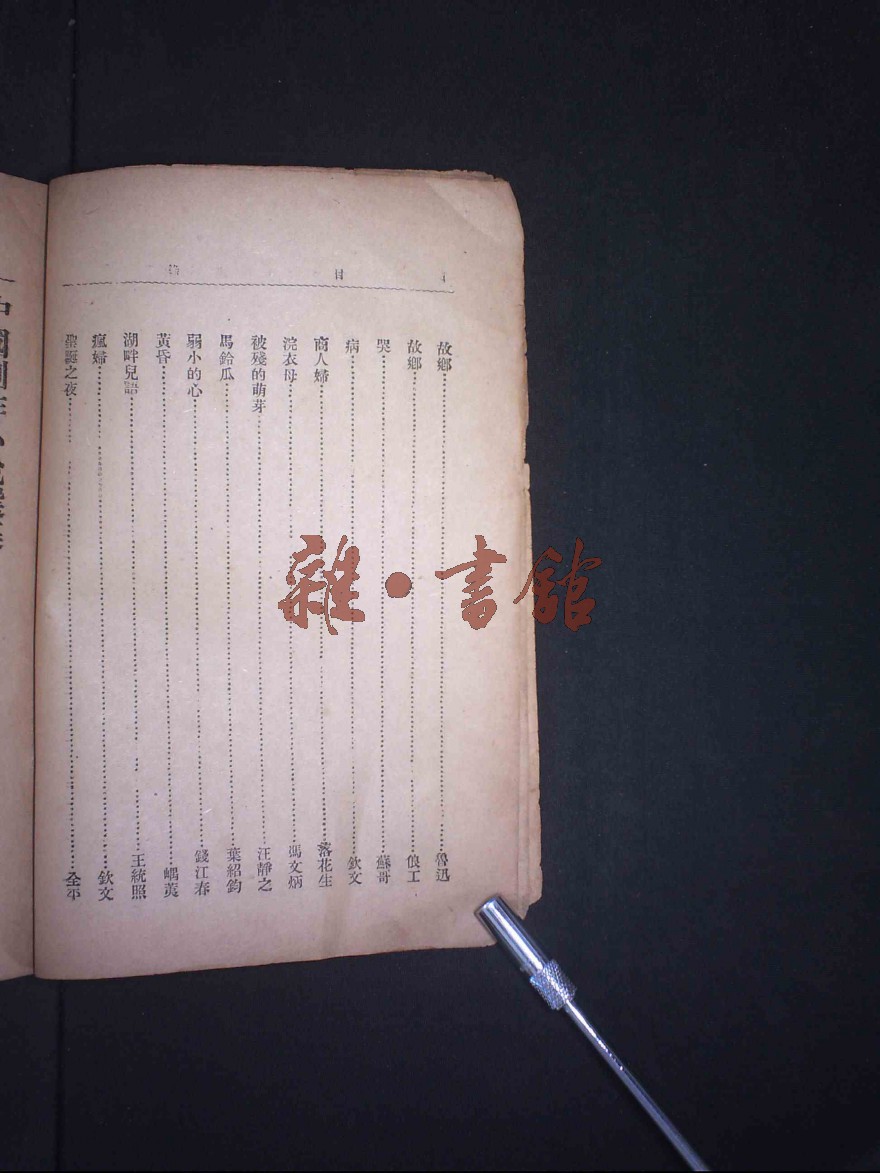 目
故鄉……魯迅
故鄉……俍工
哭……蘇哥
病……欽文
商人婦……落花生
浣衣母……馮文炳
被殘的萌芽……汪靜之
馬鈴瓜……葉紹鈞
弱小的心……錢江春
黃昏……嵎荑
湖畔兒語……王統照
瘋婦……欽文
聖誕之夜……全平
雜·書館